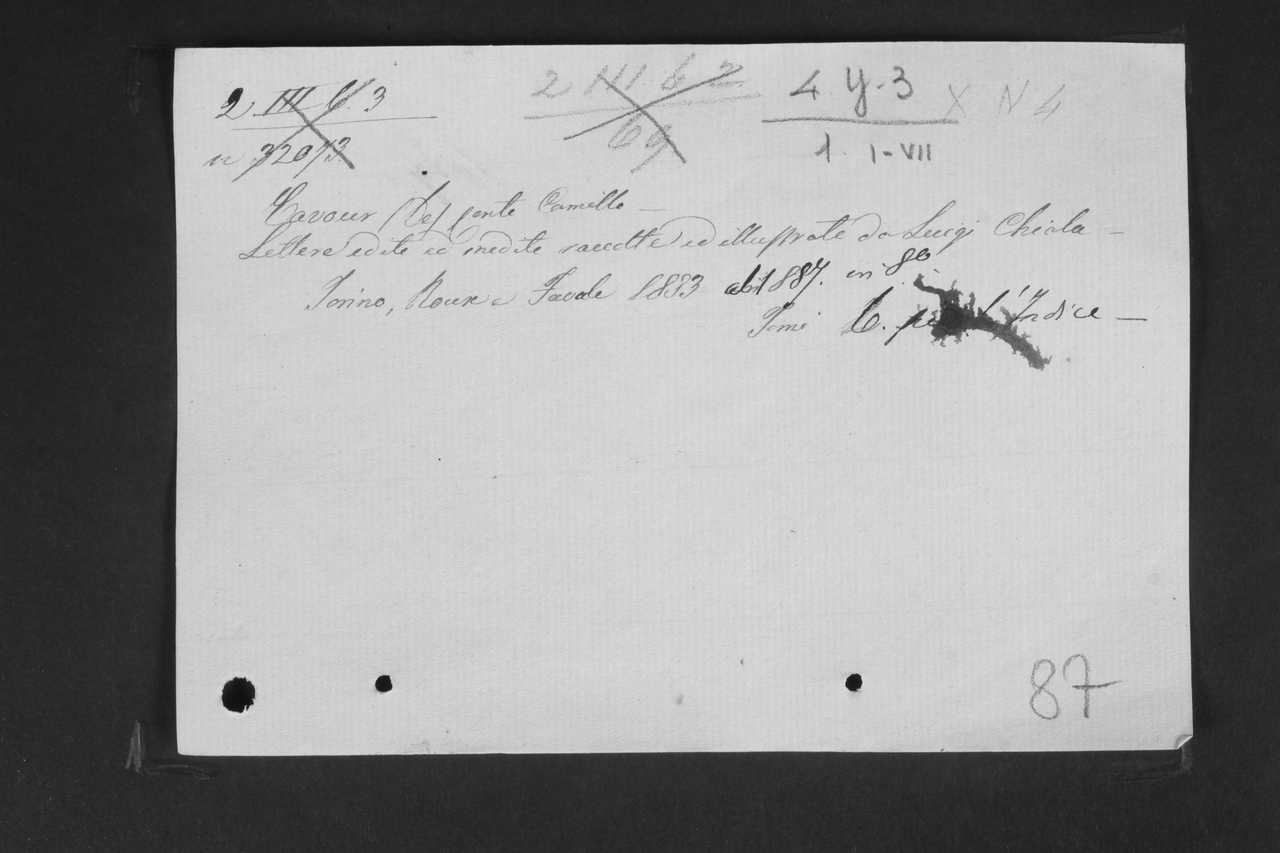 2. III. 6. 3
n. 32073
2 III. 6 2.
69
4. y. 3
1. I-VII
X N 4
Cavour (de) conte Camillo —
Lettere edite ed inedite raccolte ed illustrate da Luigi Chiala —
Torino, Roux e Favale 1883 al 1887. in 8º
Tomi 6. più l'Indice —
87